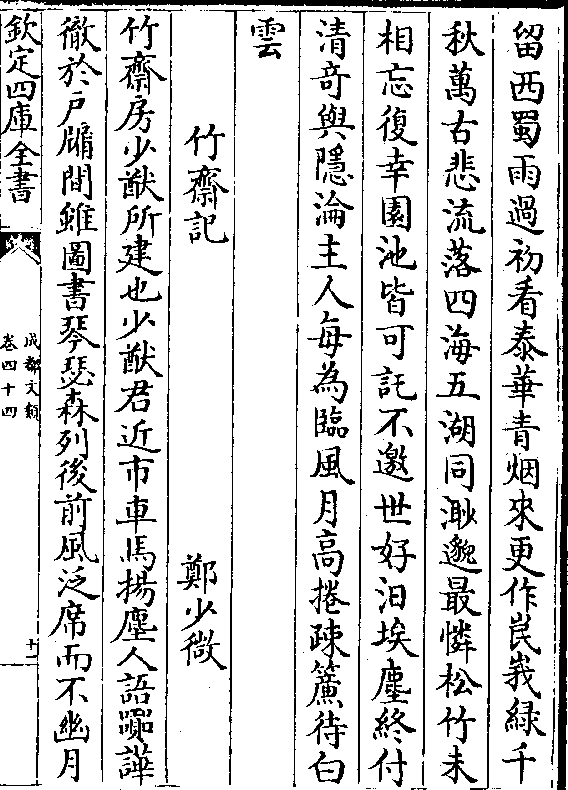 留西蜀雨過初看泰華青烟來更作峩嵋緑千
秋萬古悲流落四海五湖同渺邈最憐松竹未
相忘復幸園池皆可託不邀世好汨埃塵終付
清竒與隱淪主人每為臨風月高捲踈簾待白
雲
竹齋記
鄭少微
竹齋房少猷所建也少猷君近市車馬揚塵人語嚻譁
徹於戸牖間雖圖書琴瑟森列後前風泛席而不幽月
欽定四庫全書
成都文類
卷四十四
十一